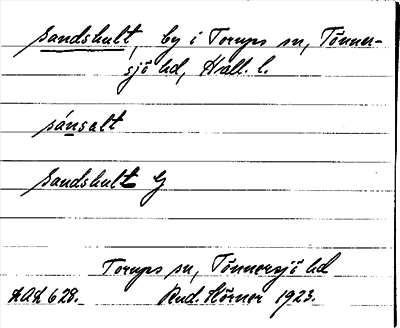 Sandshult, by i Torups sn, Tönner-
sjö hd, Hall. l.
sánsalt
Sandshult G
Torups sn, Tönnersjö hd
AAL 628. Rud. Hörner 1923.